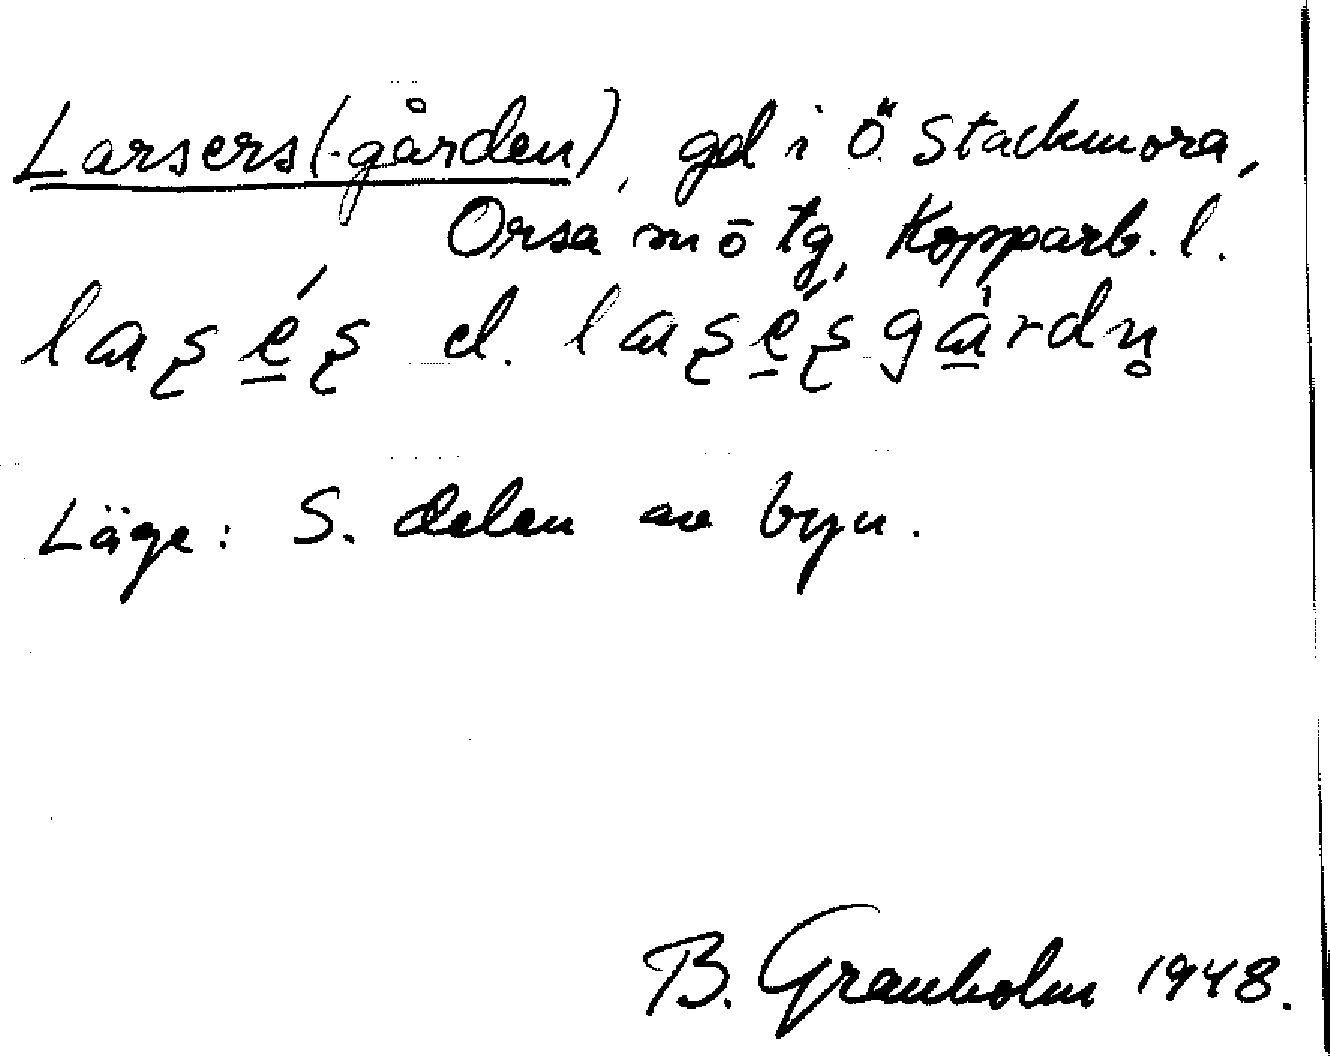 Larsers(-gården), gd i Ö. Stackmora,
Orsa sn ö tg, Kopparb. l.
Läge: S. delen av byn.
B. Granholm 1948.